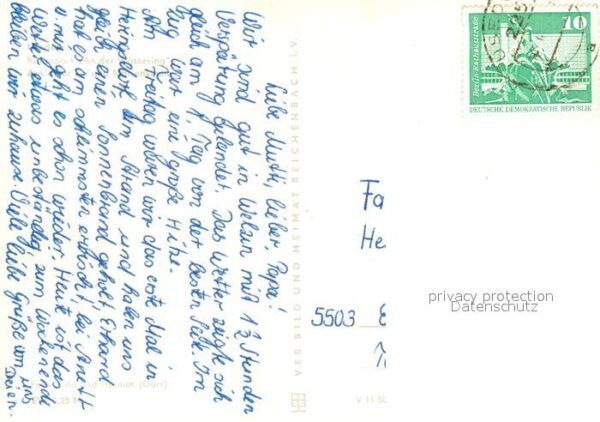 Liebe Mutti, lieber Papa!
Wir sind gut in Welzin mit 1½ Stunden
Verspätung gelandet. Das Wetter zeigte sich
gleich am 1. Tag von der besten Seite. Im
Zug war eine große Hitze.
Am Freitag waren wir das erste Mal in
am Strand und haben uns
gleich einen Sonnenbrand geholt. Erhard
hat es am schlimmsten erwischt, bei Anett
u. mir geht es schon wieder. Heute ist das
Wetter etwas unbeständig, zum Wochenende
bleiben wir zuhause. Viele liebe Grüße von uns
Dreien.
VEB BILD UND HEIMAT REICHENBACH I. V.
V 11 50
Berlin-Rathausstraße
10
DEUTSCHE DEMOKRATISCHE REPUBLIK
Fa
He
5503
privacy protection
Datenschutz